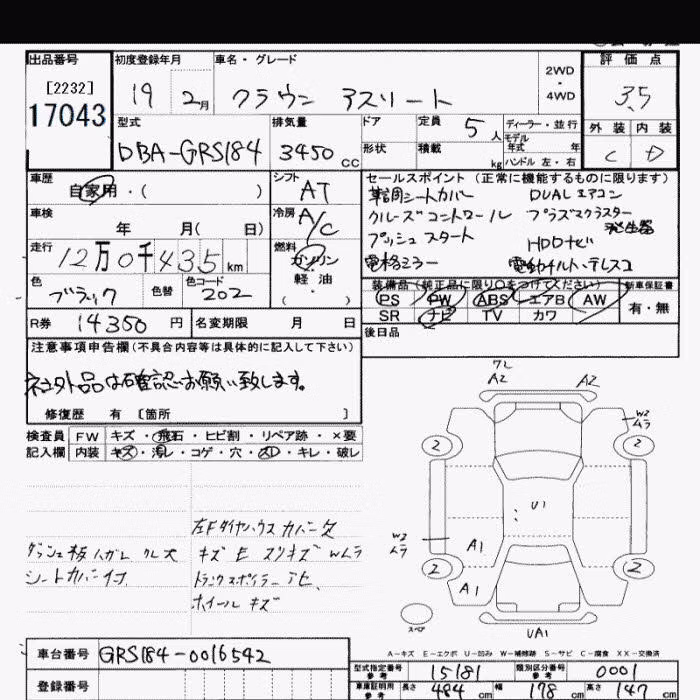 出品番号 初度登録年月 車名・グレード 2WD ・ 4WD 評価点
[2232]
17043
19 2月 クラウン アスリート 3.5
型式 排気量 ドア 定員 5人 ディーラー・並行 外装 内装
DBA-GRS184 3450cc 形状 積載 kg モデル年式 年 ハンドル 左・右 C D
車歴 シフト セールスポイント（正常に機能するものに限ります）
自家用・（ ） AT
革調シートカバー DUALエアコン
車検 冷房
年 月（ 日） A/C
クルーズコントロール プラズマクラスター
発生器
プッシュスタート HDDナビ
走行 燃料
12万0千435km ガソリン・軽油・（ ）
電格ミラー 電動チルト・テレスコ
色 色替 色コード
ブラック 202
装備品（純正品に限り〇をつけてください） 新車保証書
PS PW ABS エアB AW 有・無
SR ナビ TV カワ
R券 14350円 名変期限 月 日
後日品
注意事項申告欄（不具合内容等は具体的に記入して下さい）
社外品は確認お願い致します。
修復歴 有 〔箇所 〕
検査員 FW キズ・飛石・ヒビ割・リペア跡・×要
記入欄 内装 キズ・汚レ・コゲ・穴・スレ・キレ・破レ
左Fダイヤハウスカバー欠
ダッシュ板ハガレ クルス キズ E スリキズ Wムラ
シートカバー付 トランクスポイラー
ホイールキズ
フレ
A2 A2
W2
ムラ
2 2
U1
W2
ムラ
A1
2 2
A1
スペア
UA1
A－キズ E－エクボ U－凹み W－補修跡 S－サビ C－腐食 XX－交換済
車台番号 GRS184-0016542
型式指定番号 参考 15181 類別区分番号 参考 0001
登録番号 車庫証明用 参考 長さ 484cm 幅 178cm 高さ 147cm